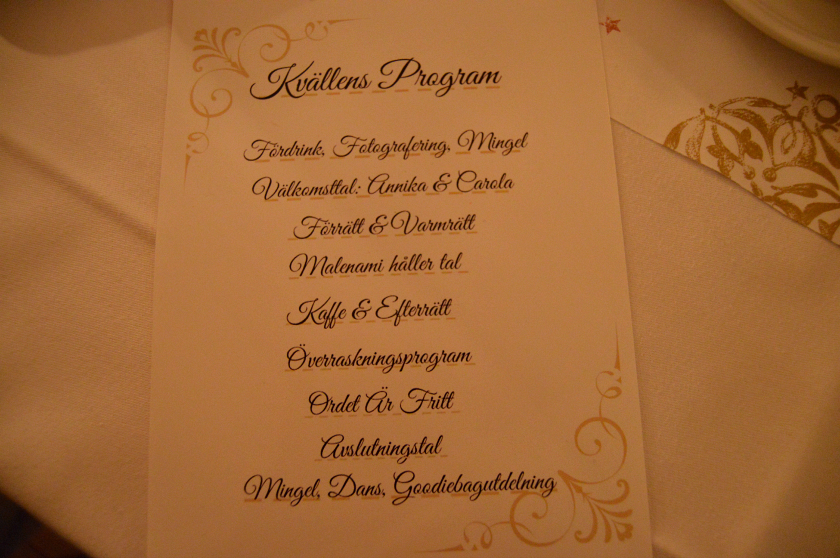 Kvällens Program
Fördrink, Fotografering, Mingel
Välkomsttal: Annika & Carola
Förrätt & Varmrätt
Malenami håller tal
Kaffe & Efterrätt
Överraskningsprogram
Ordet Är Fritt
Avslutningstal
Mingel, Dans, Goodiebagutdelning